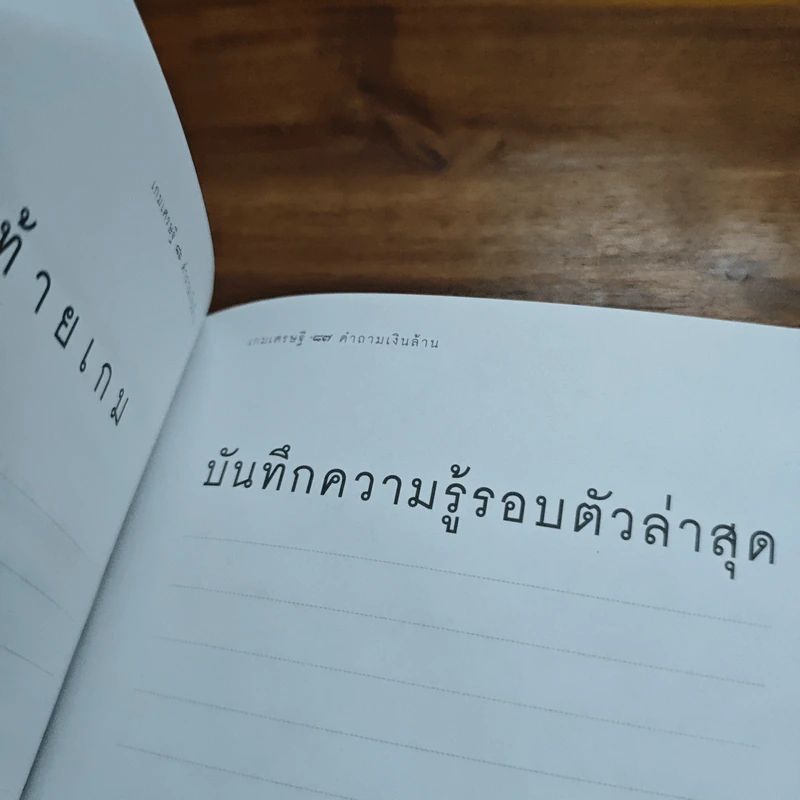 ท้ายเกม
เกมเศรษฐี
เกมเศรษฐี ๘๗ คำถามเงินล้าน
บันทึกความรู้รอบตัวล่าสุด